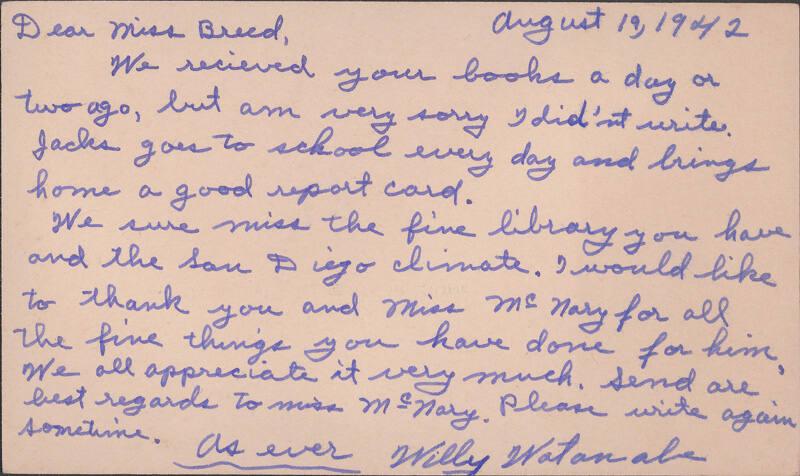 August 19, 1942
Dear Miss Breed,
We recieved your books a day or
two ago, but am very sorry I did'nt write.
Jacks goes to school every day and brings
home a good report card.
We sure miss the fine library you have
and the San Diego climate. I would like
to thank you and Miss McNary for all
the fine things you have done for him,
We all appreciate it very much. Send are
best regards to miss McNary. Please write again
sometime.
As ever Willy Watanabe